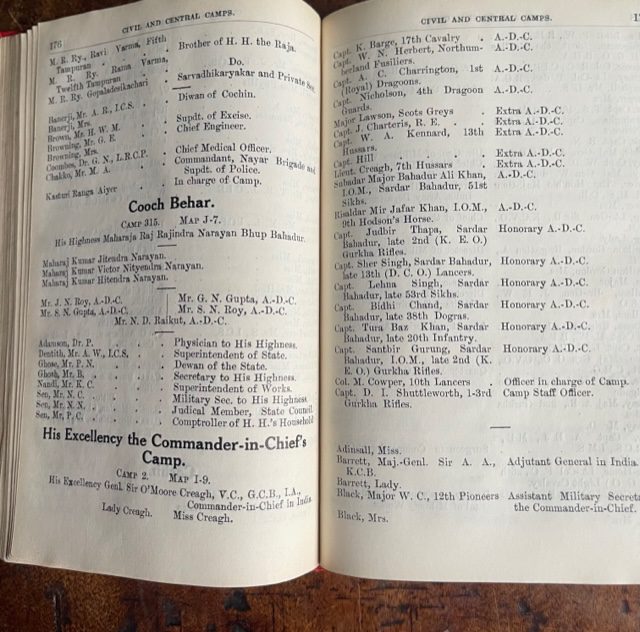 176
CIVIL AND CENTRAL CAMPS.
M. R. Ry., Ravi Varma, Fifth Tampuran . . Brother of H. H. the Raja.
M. R. Ry. Rama Varma, Twelfth Tampuran . Do.
M. R. Ry. Gopaladesikachari . Sarvadhikaryakar and Private
Banerji, Mr. A. R., I.C.S. . Diwan of Cochin.
Banerji, Mrs.
Brown, Mr. H. W. M. . Supdt. of Excise.
Browning, Mr. G. E. . Chief Engineer.
Browning, Mrs.
Coombes, Dr. G. N., L.R.C.P. . Chief Medical Officer.
Chakko, Mr. M. A. . Commandant, Nayar Brigade and
Supdt. of Police.
Kasturi Ranga Aiyer . . In charge of Camp.
Cooch Behar.
CAMP 315. MAP J-7.
His Highness Maharaja Raj Rajindra Narayan Bhup Bahadur.
Maharaj Kumar Jitendra Narayan.
Maharaj Kumar Victor Nityendra Narayan.
Maharaj Kumar Hitendra Narayan.
Mr. J. N. Roy, A.-D.-C. Mr. G. N. Gupta, A.-D.-C.
Mr. S. N. Gupta, A.-D.-C. Mr. S. N. Roy, A.-D.-C.
Mr. N. D. Raikut, A.-D.-C.
Adamson, Dr. P. . . Physician to His Highness.
Dentith, Mr. A. W., I.C.S. . Superintendent of State.
Ghose, Mr. P. N. . . Dewan of the State.
Ghosh, Mr. B. . . Secretary to His Highness.
Nandi, Mr. K. C. . . Superintendent of Works.
Sen, Mr. N. C. . . Military Sec. to His Highness
Sen, Mr. N. N. . . Judicial Member, State Council
Sen, Mr. P. C. . . Comptroller of H. H.'s Household
His Excellency the Commander-in-Chief's
Camp.
CAMP 2. MAP I-9.
His Excellency Genl. Sir O'Moore Creagh, V.C., G.C.B., I.A.,
Commander-in-Chief in India.
Lady Creagh. Miss Creagh.
CIVIL AND CENTRAL CAMPS.
Capt. K. Barge, 17th Cavalry . A.-D.-C.
Capt. W. N. Herbert, Northum- A.-D.-C.
berland Fusiliers.
Capt. A. C. Charrington, 1st A.-D.-C.
(Royal) Dragoons.
Capt. Nicholson, 4th Dragoon A.-D.-C.
Guards.
Major Lawson, Scots Greys . Extra A.-D.-C.
Capt. J. Charteris, R. E. . Extra A.-D.-C.
Capt. W. A. Kennard, 13th Extra A.-D.-C.
Hussars.
Capt. Hill . . . . Extra A.-D.-C.
Lieut. Creagh, 7th Hussars . Extra A.-D.-C.
Subadar Major Bahadur Ali Khan, A.-D.-C.
I.O.M., Sardar Bahadur, 51st
Sikhs.
Risaldar Mir Jafar Khan, I.O.M., A.-D.-C.
9th Hodson's Horse.
Capt. Judbir Thapa, Sardar Honorary A.-D.-C.
Bahadur, late 2nd (K. E. O.)
Gurkha Rifles.
Capt. Sher Singh, Sardar Bahadur, Honorary A.-D.-C.
late 13th (D. C. O.) Lancers.
Capt. Lehna Singh, Sardar Honorary A.-D.-C.
Bahadur, late 53rd Sikhs.
Capt. Bidhi Chand, Sardar Honorary A.-D.-C.
Bahadur, late 38th Dogras.
Capt. Tura Baz Khan, Sardar Honorary A.-D.-C.
Bahadur, late 20th Infantry.
Capt. Santbir Gurung, Sardar Honorary A.-D.-C.
Bahadur, I.O.M., late 2nd (K.
E. O.) Gurkha Rifles.
Col. M. Cowper, 10th Lancers . Officer in charge of Camp.
Capt. D. I. Shuttleworth, 1-3rd Camp Staff Officer.
Gurkha Rifles.
Adinsall, Miss.
Barrett, Maj.-Genl. Sir A. A., Adjutant General in India.
K.C.B.
Barrett, Lady.
Black, Major W. C., 12th Pioneers Assistant Military
the Commander-in-Chief.
Black, Mrs.